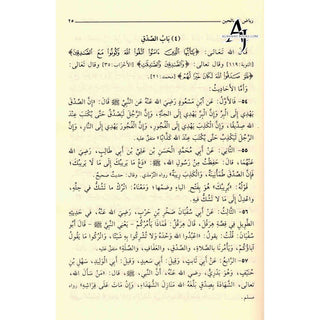 رياض الصالحين
٢٥
(٤) بَابُ الصِّدْقِ
قَالَ اللهُ تَعَالَى: ﴿يَا أَيُّهَا الَّذِينَ ءَامَنُوا اتَّقُوا اللَّهَ وَكُونُوا مَعَ الصَّادِقِينَ﴾
[التوبة: ١١٩] وقال تعالى: ﴿وَالصَّادِقِينَ وَالصَّادِقَاتِ﴾ [الأحزاب: ٣٥] وقال تعالى:
﴿فَلَوْ صَدَقُوا اللَّهَ لَكَانَ خَيْرًا لَّهُمْ﴾ [محمد: ٢١].
وَأَمَّا الأَحَادِيثُ:
٥٤- فَالأَوَّلُ: عَنِ ابْنِ مَسْعُودٍ رَضِيَ اللهُ عَنْهُ عَنِ النَّبِيِّ ﷺ قَالَ: «إِنَّ الصِّدْقَ
يَهْدِي إِلَى الْبِرِّ، وَإِنَّ الْبِرَّ يَهْدِي إِلَى الْجَنَّةِ، وَإِنَّ الرَّجُلَ لَيَصْدُقُ حَتَّى يُكْتَبَ عِنْدَ
اللهِ صِدِّيقًا، وَإِنَّ الْكَذِبَ يَهْدِي إِلَى الْفُجُورِ، وَإِنَّ الْفُجُورَ يَهْدِي إِلَى النَّارِ، وَإِنَّ
الرَّجُلَ لَيَكْذِبُ حَتَّى يُكْتَبَ عِنْدَ اللهِ كَذَّابًا»
٥٥- الثَّانِي: عَنْ أَبِي مُحَمَّدٍ الْحَسَنِ بْنِ عَلِيِّ بْنِ أَبِي طَالِبٍ، رَضِيَ اللهُ
عَنْهُمَا، قَالَ: حَفِظْتُ مِنْ رَسُولِ اللهِ ﷺ: «دَعْ مَا يَرِيبُكَ إِلَى مَا لَا يَرِيبُكَ؛
فَإِنَّ الصِّدْقَ طُمَأْنِينَةٌ، وَالْكَذِبَ رِيبَةٌ» رواه الترمذي، وقال: حديث صحيح.
قَوْلُهُ: «يَرِيبُكَ» هُوَ بِفَتْحِ الياءِ وضمها، وَمَعْنَاهُ: اتْرُكْ مَا تَشُكُّ فِي حِلِّهِ،
وَاعْدِلْ إِلَى مَا لَا تَشُكُّ فِيهِ.
٥٦- الثَّالِثُ: عَنْ أَبِي سُفْيَانَ صَخْرِ بْنِ حَرْبٍ، رَضِيَ اللهُ عَنْهُ، فِي حَدِيثِهِ
الطَّوِيلِ فِي قِصَّةِ هِرَقْلَ، قَالَ هِرَقْلُ: فَمَاذَا يَأْمُرُكُمْ - يَعْنِي النَّبِيَّ ﷺ - قَالَ أَبُو
سُفْيَانَ: قُلْتُ: يَقُولُ: «اعْبُدُوا اللهَ وَحْدَهُ لَا تُشْرِكُوا بِهِ شَيْئًا، وَاتْرُكُوا مَا يَقُولُ
آبَاؤُكُمْ، وَيَأْمُرُنَا بِالصَّلَاةِ، وَالصِّدْقِ، وَالْعَفَافِ، وَالصِّلَةِ»
٥٧- الرَّابِعُ: عَنْ أَبِي ثَابِتٍ، وَقِيلَ: أَبِي سَعِيدٍ، وَقِيلَ: أَبِي الْوَلِيدِ، سَهْلِ بْنِ
حُنَيْفٍ، وَهُوَ بَدْرِيٌّ، رَضِيَ اللهُ عَنْهُ، أَنَّ النَّبِيَّ ﷺ قَالَ: «مَنْ سَأَلَ اللهَ،
تَعَالَى، الشَّهَادَةَ بِصِدْقٍ بَلَّغَهُ اللهُ مَنَازِلَ الشُّهَدَاءِ، وَإِنْ مَاتَ عَلَى فِرَاشِهِ» رواه
مسلم.